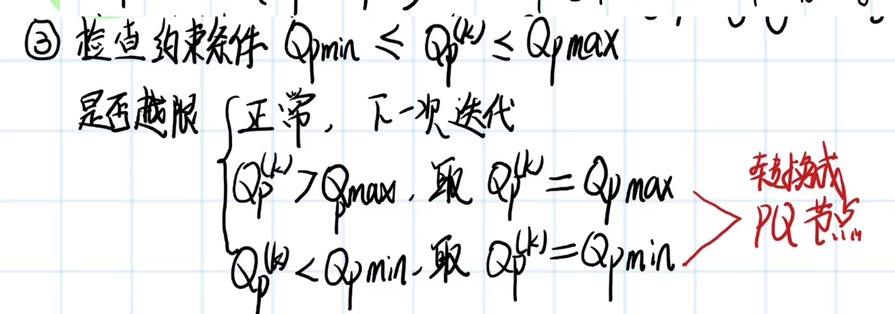 ③ 检查约束条件 Qpmin ≤ Qp^(k) ≤ Qpmax
是否越限 { 正常, 下一次迭代
Qp^(k) > Qpmax, 取 Qp^(k) = Qpmax
Qp^(k) < Qpmin, 取 Qp^(k) = Qpmin
转换成
PQ 节点